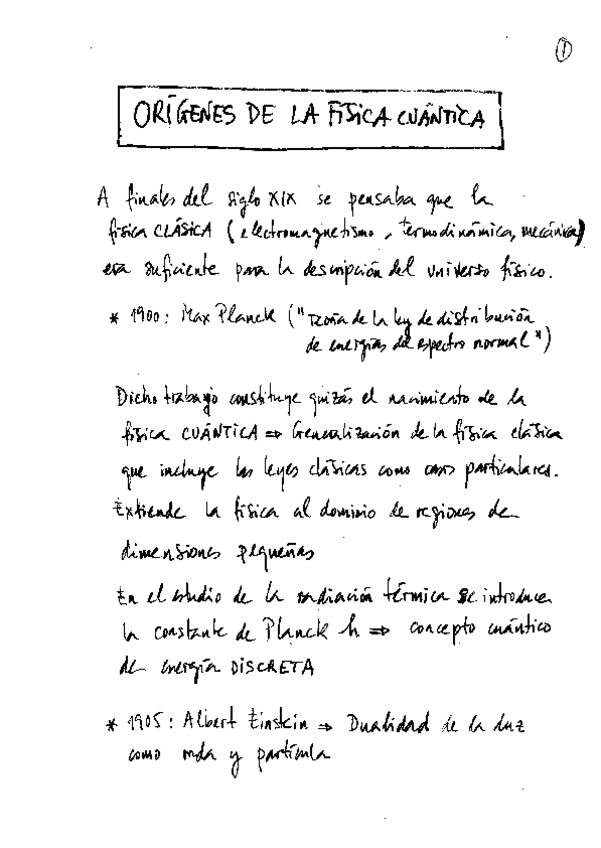 1
ORÍGENES DE LA FÍSICA CUÁNTICA
A finales del siglo XIX se pensaba que la
física CLÁSICA (electromagnetismo, termodinámica, mecánica)
era suficiente para la descripción del universo físico.
* 1900: Max Planck ("Teoría de la ley de distribución
de energías del espectro normal")
Dicho trabajo constituye quizás el nacimiento de la
física CUÁNTICA ⇒ Generalización de la física clásica
que incluye las leyes clásicas como casos particulares.
Extiende la física al dominio de regiones de
dimensiones pequeñas
En el estudio de la radiación térmica se introduce
la constante de Planck h ⇒ concepto cuántico
de energía DISCRETA
* 1905: Albert Einstein ⇒ Dualidad de la luz
como onda y partícula